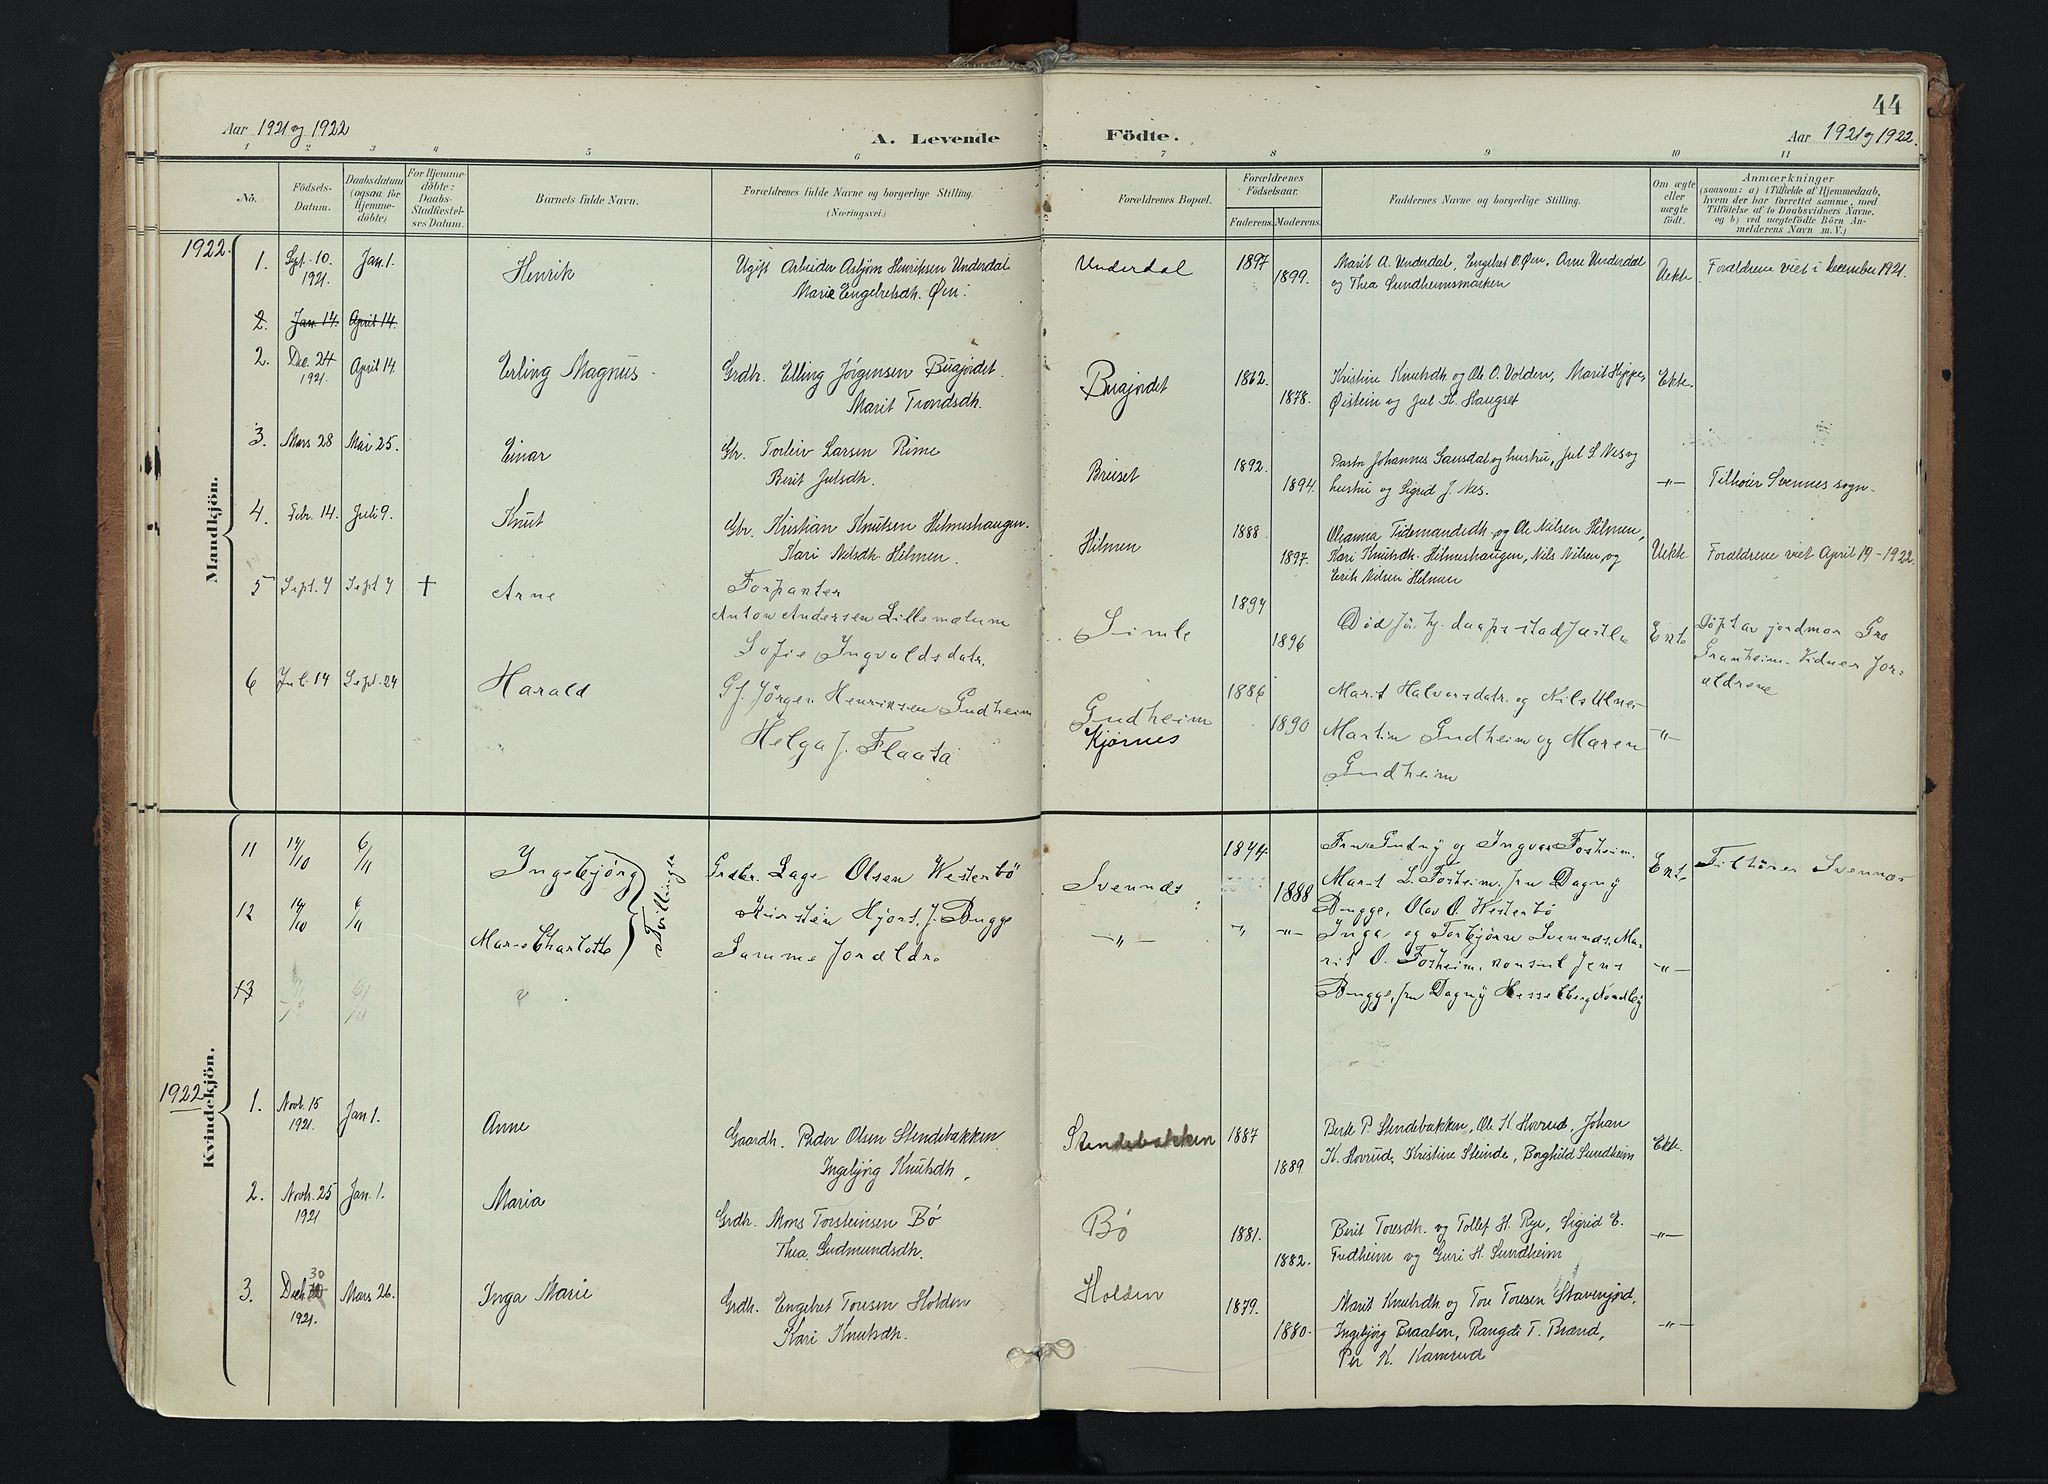 44
Aar 1921 og 1922
A. Levende
Födte.
Aar 1921 og 1922.
1 2 3 4 5 6 7 8 9 10 11
No.
Födsels-Datum.
Daabsdatum (ogsaa for Hjemmedöbte)
For Hjemmedöbte: Daabs-Stadfestelses Datum.
Barnets fulde Navn.
Forældrenes fulde Navne og borgerlige Stilling.
(Næringsvei.)
Forældrenes Bopæl.
Forældrenes Födselsaar.
Faderens. Moderens.
Faddernes Navne og borgerlige Stilling.
Om ægte eller uægte födt.
Anmærkninger
(saasom: a) i Tilfælde af Hjemmedaab,
hvem der har forrettet samme, med
Tilföielse af to Daabsvidners Navne,
og b) ved uægtefödte Börn An-
melderens Navn m.V.)
Mandkjön.
1922.
1. Sept. 10. 1921. Jan. 1. Henrik
Ugift Arbeider Asbjørn Henriksen Underdal
Marie Engebretsdtr. Øen.
Underdal 1897 1899.
Marit A. Underdal, Engebret O. Øen, Arne Underdal
og Thea Sundheimsmarken
Uekte Forældrene viet i december 1921.
2. Jan. 14. April 14.
2. Dec. 24 1921. April 14. Erling Magnus
Grdb. Elling Jørgensen Bugjordet
Marit Trondsdtr.
Bugjordet 1862. 1878.
Kristine Knutsdtr. og Ole O. Volden, Marit Hippe,
Øistein og Jul K. Haugset
Ekte.
3. Mars 28 Mai 25. Einar
Gbr. Torleiv Larsen Rime
Berit Julsdtr.
Breiset 1892. 1894.
Pastor Johannes Sausdal og hustru, Jul S. Nes og
hustru og Sigrid J. Nes.
-"- Tilhører Svennes sogn.
4. Febr. 14. Juli 9. Knut
Gbr. Kristian Knutsen Hilmeshaugen.
Kari Nilsdtr. Hilmen.
Hilmen 1888. 1897.
Oleanna Tidemandsdtr. og Ole Nilsen Hilmen,
Kari Knutsdtr. Hilmeshaugen, Nils Nilsen, og
Erik Nilsen Hilmen
Uekte Forældrene viet April 19 - 1922.
5 Sept. 4 Sept 4 † Arne
Forpanter
Anton Andersen Lillemælum
Sofie Ingvaldsdatr.
Simle 1894 1896
Død før hj. daaps stadfæstla
Ekte Døpt av jordmor Gro
Granheim. Vidner For-
ældrene
6 Jul. 14 Sept. 24 Harald
Gf. Jörgen Henriksen Gudheim
Helga J. Flaata
Gudheim
Kjørnes
1886 1890
Marit Halvorsdatr. og Nils Ulnes
Martin Gudheim og Maren
Gudheim
-"-
Kvindekjön.
11 14/10 6/11 Ingebjørg
Tvillinger
Grdbr. Lage Olsen Westerbö
Kirsten Hjort, f. Bugge
Svennæs 1844 1888
Fru Gudny og Ingvar Fosheim.
Marit L. Fosheim, fru Dagny
Bugge, Olav O. Westerbö
Ekte Tilhører Svennæs
12 14/10 6/11 Marie Charlotte
Samme Foræld
-"- -"- -"-
Inga og Torbjörn Svennæs, Ma-
rit O. Fosheim, konsul Jens
Bugge, fru Dagny Hesselberg Nordby
-"-
13
1922
1. Novb. 15 1921. Jan 1. Anne
Gaardb. Peder Olsen Stendebakken
Ingebjörg Knutsdtr.
Stendebakken 1887 1889.
Berte P. Stendebakken, Ole K. Hovrud, Johan
K. Hovrud, Kristine Steinde, Borghild Sundheim
Ekte.
2. Novb. 25 1921 Jan. 1. Maria
Grdb. Mons Torsteinsen Bø
Thea Gudmundsdtr.
Bø 1881. 1882.
Berit Toresdtr. og Tollef H. Rye, Sigrid E.
Fudheim og Guri H. Sundheim
-"-
3. Decb. 30 1921. Mars 26. Inga Marie
Grdb. Engebret Toresen Holden
Kari Knutsdtr.
Holden 1879. 1880.
Marit Knutsdtr og Tore Toresen Stavenjord,
Ingebjörg Braaten, Rangdi T. Brænd,
Per K. Kamrud
-"-